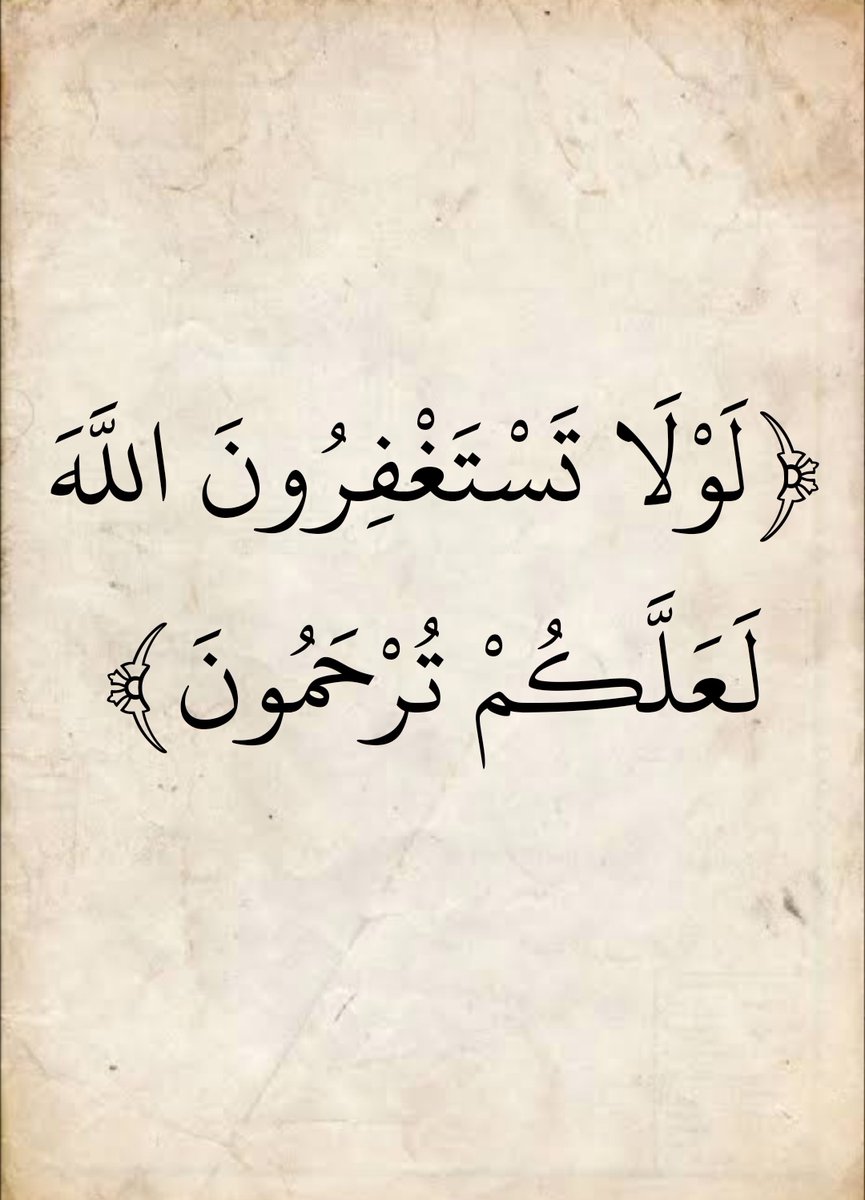 ﴿لَوْلَا تَسْتَغْفِرُونَ اللَّهَ
لَعَلَّكُمْ تُرْحَمُونَ﴾